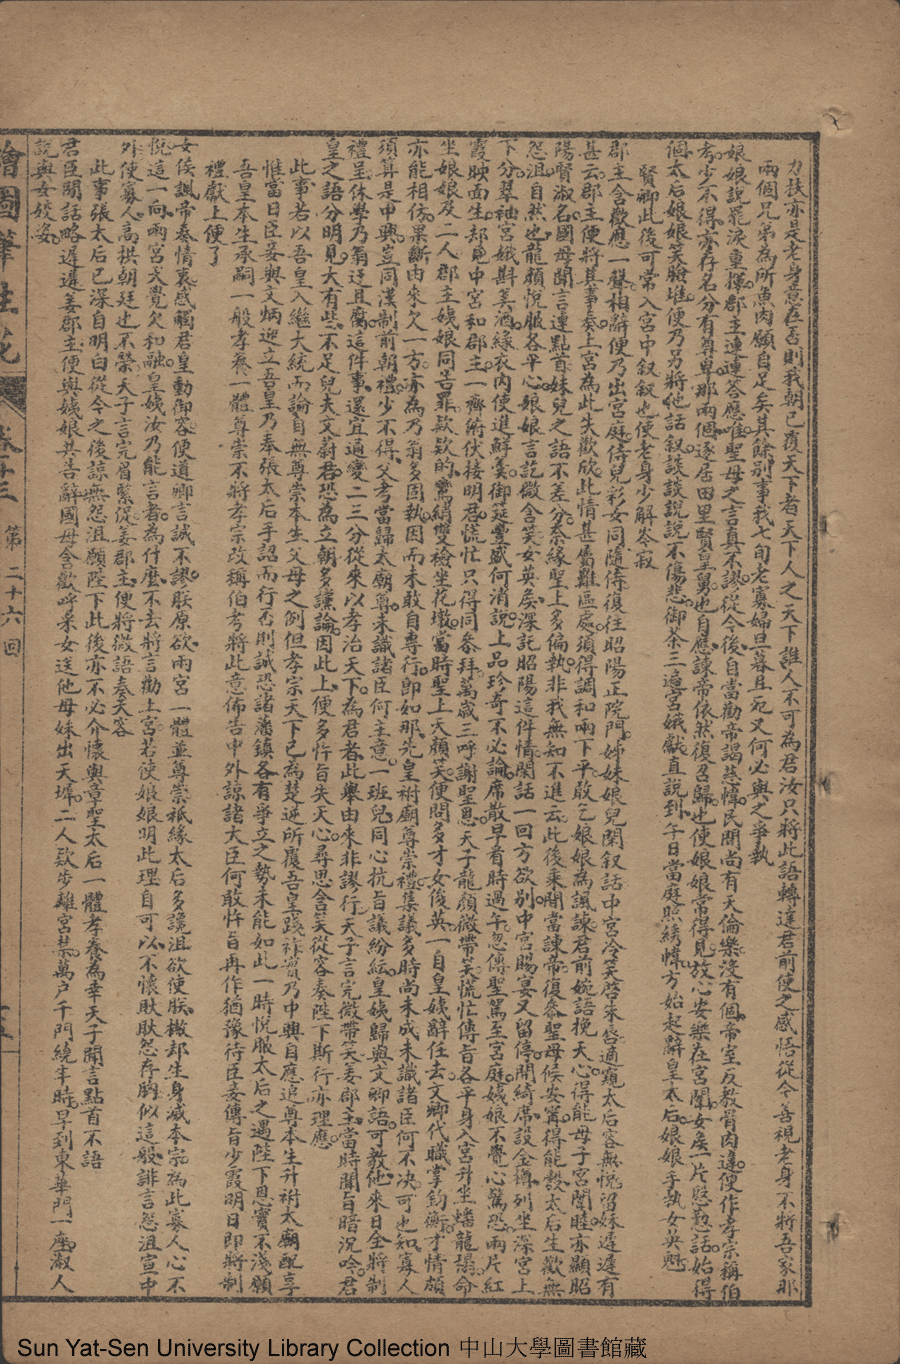 力扶亦是老身意在否則我朝已覆天下者天下人之天下誰人不可為君汝只將此語轉達君前使之感悟從今善視老身不將吾家那
兩個兄弟為所魚肉願自足矣其餘別事我七旬老寡婦旦暮且死又何必與之爭執
娘娘說罷淚重揮郡主連連答應唯聖母之言真不謬從今後自當勸帝謁慈幃民間尚有天倫樂沒有個帝室反教骨肉違使作孝宗稱伯
考少不得亦存名分有尊卑那兩個逐居田里賢皇舅也自應諫帝依然復召歸也使娘娘常得見放心安樂在宮闈女侯一片慰懃話始得
個太后娘娘笑臉堆便乃另將他話叙談談說說不傷悲御茶三遍宮娥獻直說到午日當庭照綉幃方始起辭皇太后娘娘手執女英魁
賢卿此後可常入宮中叙叙也使老身少解岑寂
郡主含歡應一聲相辭便乃出宮庭侍兒彩女同隨侍復往昭陽正院門姊妹娘兒閑叙話中宮冷笑啓朱唇適窺太后容無悅留妹遲遲有
甚云郡主便將其事奏上宮為此失歡欣此情甚屬難區處須得調和兩下平啟乞娘娘為諷諫君前婉語挽天心得能母子宮闈睦亦顯昭
陽賢淑名國母聞言連點首妹兒之語不差分奈緣聖上多偏執非我無知不進云此後乘閒當諫帝復叅聖母候安寗得能彀太后生歡無
怨沮自然也龍顏悅服吞平心娘娘言訖微含笑女英侯深託昭陽這件情閑話一回方欲別中宮賜宴又留停開綺席設金樽列坐深宮上
下分翠袖宮娥斟美酒綠衣內使進鮮羹御筵豐盛何消說上品珍奇不必論席散早看時過午忽傳聖駕至宮庭姨娘不覺心驚恐兩片紅
霞映面生却覓中宮和郡主一齊俯伏接明君慌忙只得同叅拜萬歲三呼謝聖恩天子龍顏微帶笑慌忙傳旨各平身入宮升坐蟠龍榻命
坐娘娘及二人郡主姨娘同告罪欵欵的鸞綃雙襝坐花墩當時聖上天顏笑便問多才女後英一自皇姨辭任去文卿代職掌鈞衡才情頗
亦能相仿果斷由來欠一方亦為乃翁多固執因而未敢自專行即如那先皇祔廟尊崇禮集議多時尚未成未識諸臣何不決可也知寡人
須算是中興豈同漢制前朝禮少不得父考當歸太廟尊未識諸臣何主意一班兒同心抗旨議紛紜皇姨歸與文卿語可教他來日全將制
禮呈休學乃翁迂且腐這件事還宜通變二三分從來以孝治天下為君者此舉由來非謬行天子言完微帶笑姜郡主當時聞旨暗況吟君
皇之語分明見大有些不足兒夫文蔚君恐為立朝多讜論因此上便多忤旨失天心尋思含笑從容奏陛下斯行亦理應
此事若以吾皇入繼大統而論自無尊崇本生父母之例但孝宗天下已為楚逆所覆吾皇踐祚實乃中興自應追尊本生升祔太廟配享
惟當日臣妾與文炳迎立吾皇乃奉張太后手詔而行否則誠恐諸藩鎮各有爭立之勢未能如此一時悅服太后之遇陛下恩實不淺願
吾皇本生承嗣一般孝養一體尊崇不將孝宗改稱伯考將此意佈告中外諒諸大臣何敢忤旨再作猶豫待臣妾傳旨少霞明日即將制
禮獻上便了
女侯諷帝奏情衷感觸君皇動御容便道卿言誠不謬朕原欲兩宮一體並尊崇袛緣太后多讒沮欲使朕撇却生身滅本宗為此寡人心不
悅這一向兩宮文覺欠和融皇姨汝乃能言者為什麼不去將言勸上宮若使娘娘明此理自可以不懷耿耿怨存胸似這般誹言怨沮宣中
外使寡人高拱朝廷也不榮天子言完眉緊促姜郡主便將微語奏天容
此事張太后已深自明白從今之後諒無怨沮願陛下此後亦不必介懷與章聖太后一體孝養為幸天子聞言點首不語
君臣閒話略遲遲姜郡主便與姨娘共告辭國母含歡呼采女送他母妹出天墀二人欵步離宮禁萬户千門繞半時早到東華門一座淑人
說與女姣姿
繪圖筆生花
卷十三
第二十六回
Sun Yat-Sen University Library Collection 中山大學圖書館藏